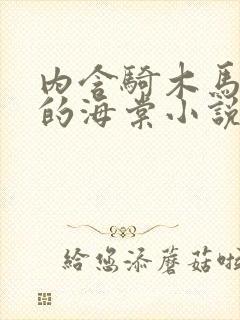 內含騎木馬
的海棠小說
給您添蘑菇啦